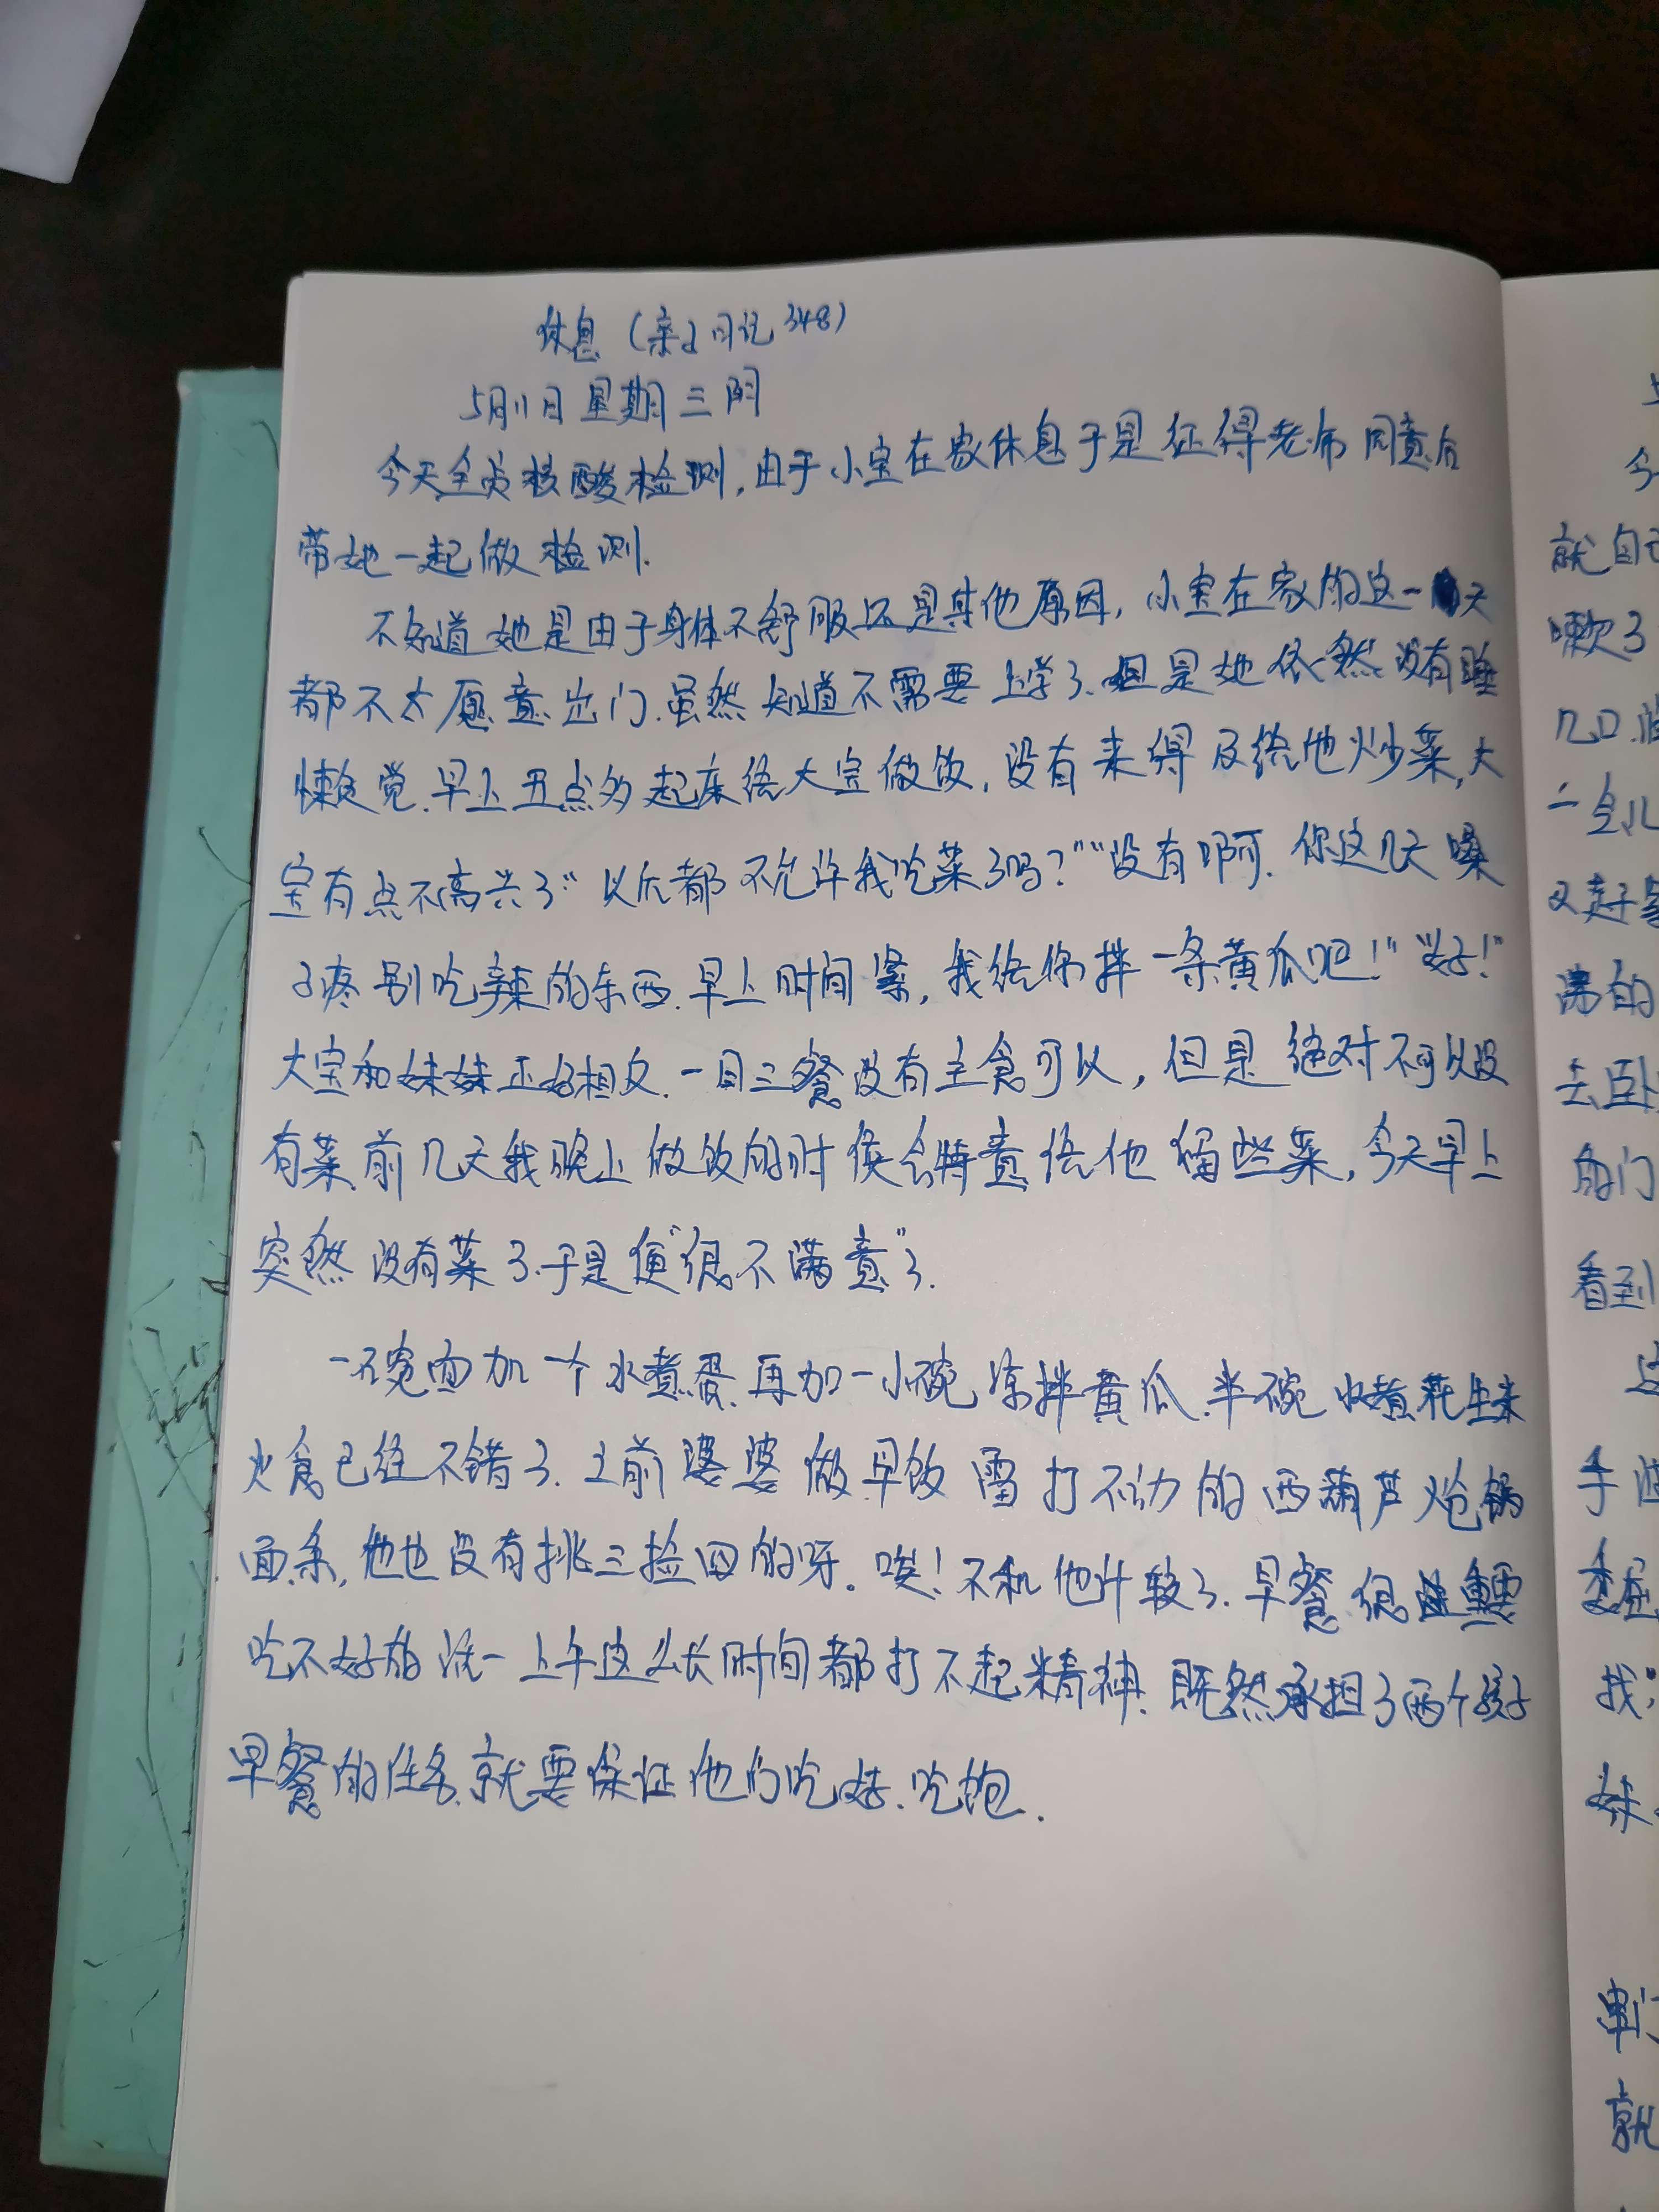 休息（亲子日记348）
5月11日星期三阴
今天全员核酸检测，由于小宝在家休息于是征得老师同意后
带她一起做检测.
不知道她是由于身体不舒服还是其他原因，小宝在家的这一天
都不太愿意出门.虽然知道不需要上学了.但是她依然没有睡
懒觉.早上五点多起床给大宝做饭，没有来得及给他炒菜，大
宝有点不高兴了“以后都不允许我吃菜了吗？”“没有啊.你这几天嗓
子疼别吃辣的东西.早上时间紧，我给你拌一条黄瓜吧！”“好！”
大宝和妹妹正好相反.一日三餐没有主食可以，但是绝对不可以没
有菜.前几天我晚上做饭的时候会特意给他留些菜，今天早上
突然没有菜了.于是便“很不满意”了.
一碗面加一个水煮蛋.再加一小碗凉拌黄瓜.半碗水煮花生米
伙食已经不错了.之前婆婆做早饭雷打不动的西葫芦炝锅
面条，他也没有挑三捡四的呀。唉！不和他计较了.早餐很重要
吃不好的话一上午这么长时间都打不起精神.既然承担了两个孩子
早餐的任务.就要保证他们吃好.吃饱.
就自己
嗽了
几口.
一会儿
又赶
满的
去卧
的门
看到
手
委屈
找
妹
串门
就